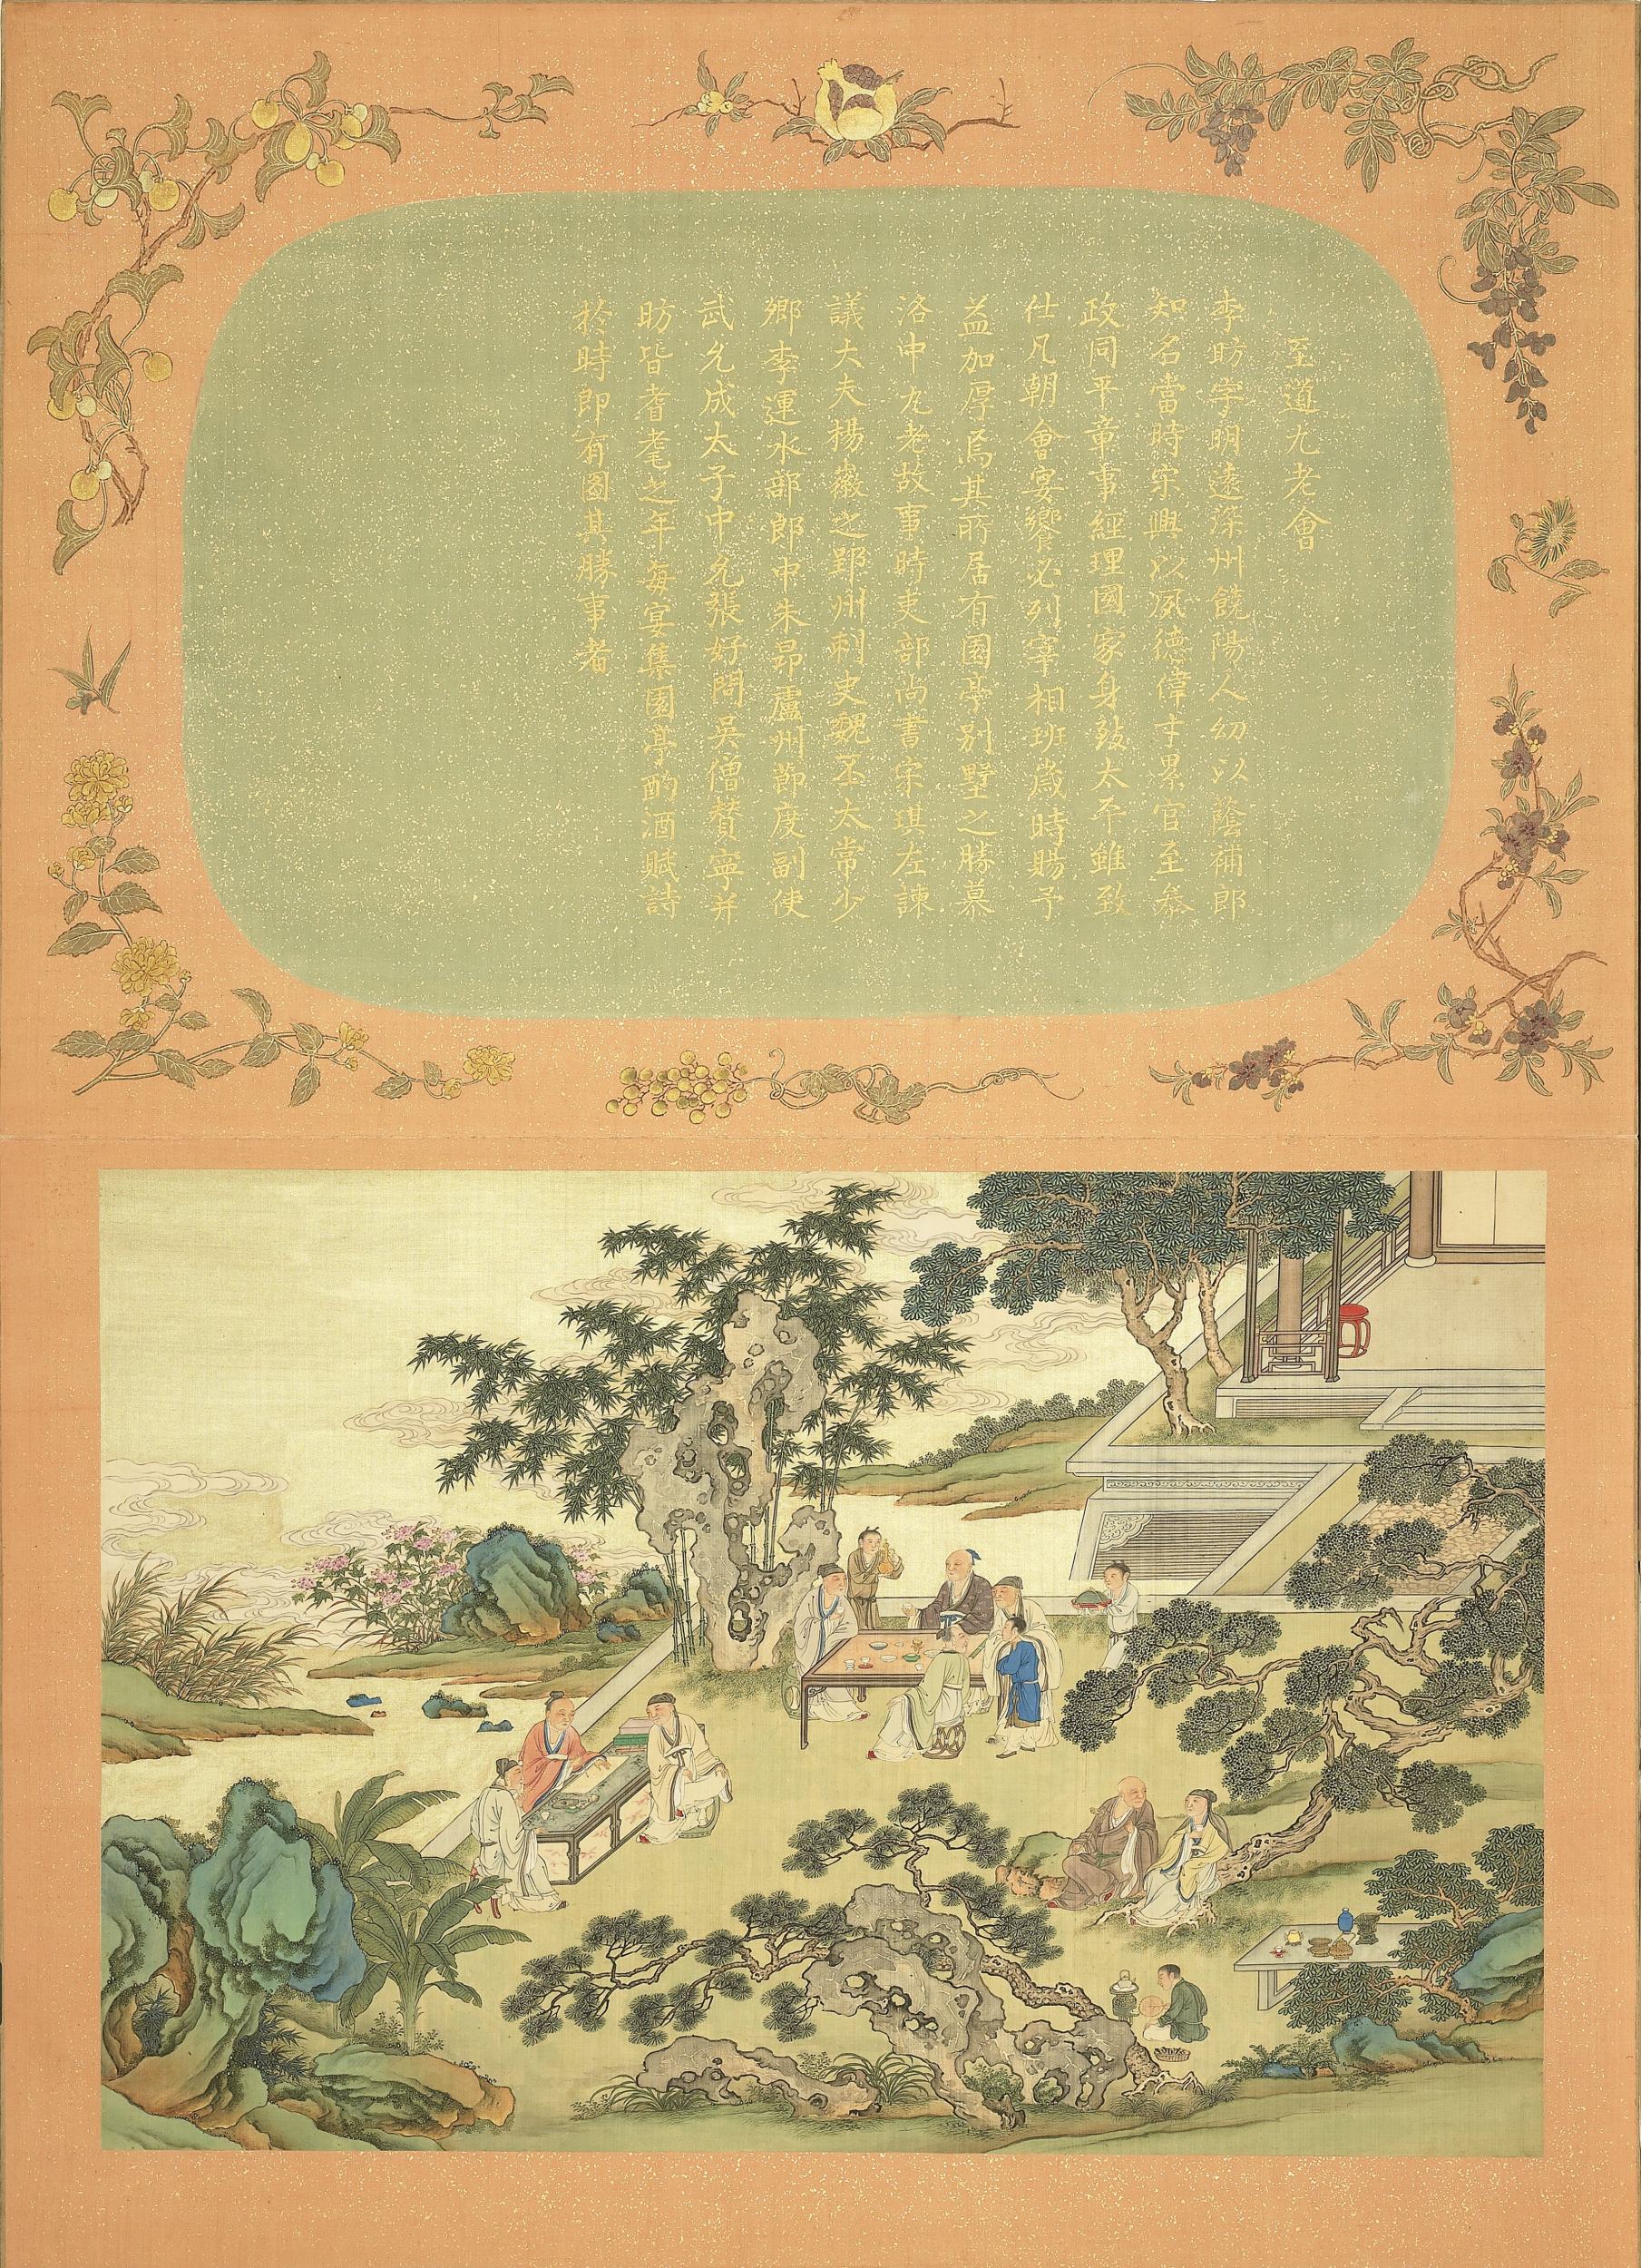 至道九老會
李昉字明遠深州饒陽人幼以蔭補郎
知名當時宋興以夙德偉才累官至叅
政同平章事經理國家身致太平雖致
仕凡朝會宴饗必列宰相班歲時賜予
益加厚焉其所居有園亭別墅之勝慕
洛中九老故事時吏部尚書宋琪左諫
議大夫楊徽之郢州刺史魏丕太常少
卿李運水部郎中朱昂廬州節度副使
武允成太子中允張好問吳僧贊寧并
昉皆耆耄之年每宴集園亭酌酒賦詩
於時即有圖其勝事者